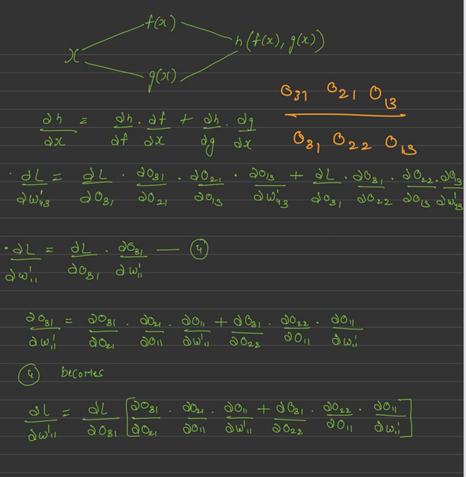 f(x)
x
h(f(x), g(x))
g(x)
O₃₁ O₂₁ O₁₃
O₃₁ O₂₂ O₁₃
∂h/∂x = ∂h/∂f · ∂f/∂x + ∂h/∂g · ∂g/∂x
· ∂L/∂w¹₄₃ = ∂L/∂O₃₁ · ∂O₃₁/∂O₂₁ · ∂O₂₁/∂O₁₃ · ∂O₁₃/∂w¹₄₃ + ∂L/∂O₃₁ · ∂O₃₁/∂O₂₂ · ∂O₂₂/∂O₁₃ · ∂O₁₃/∂w¹₄₃
· ∂L/∂w¹₁₁ = ∂L/∂O₃₁ · ∂O₃₁/∂w¹₁₁ — ④
∂O₃₁/∂w¹₁₁ = ∂O₃₁/∂O₂₁ · ∂O₂₁/∂O₁₁ · ∂O₁₁/∂w¹₁₁ + ∂O₃₁/∂O₂₂ · ∂O₂₂/∂O₁₁ · ∂O₁₁/∂w¹₁₁
④ becomes
∂L/∂w¹₁₁ = ∂L/∂O₃₁ [∂O₃₁/∂O₂₁ · ∂O₂₁/∂O₁₁ · ∂O₁₁/∂w¹₁₁ + ∂O₃₁/∂O₂₂ · ∂O₂₂/∂O₁₁ · ∂O₁₁/∂w¹₁₁]